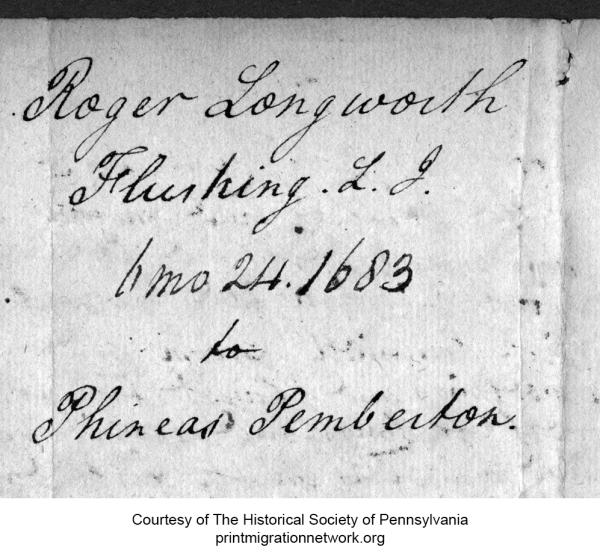 Roger Longworth
Flushing. L. I.
6 mo 24. 1683
to
Phineas Pemberton.
Courtesy of The Historical Society of Pennsylvania
printmigrationnetwork.org